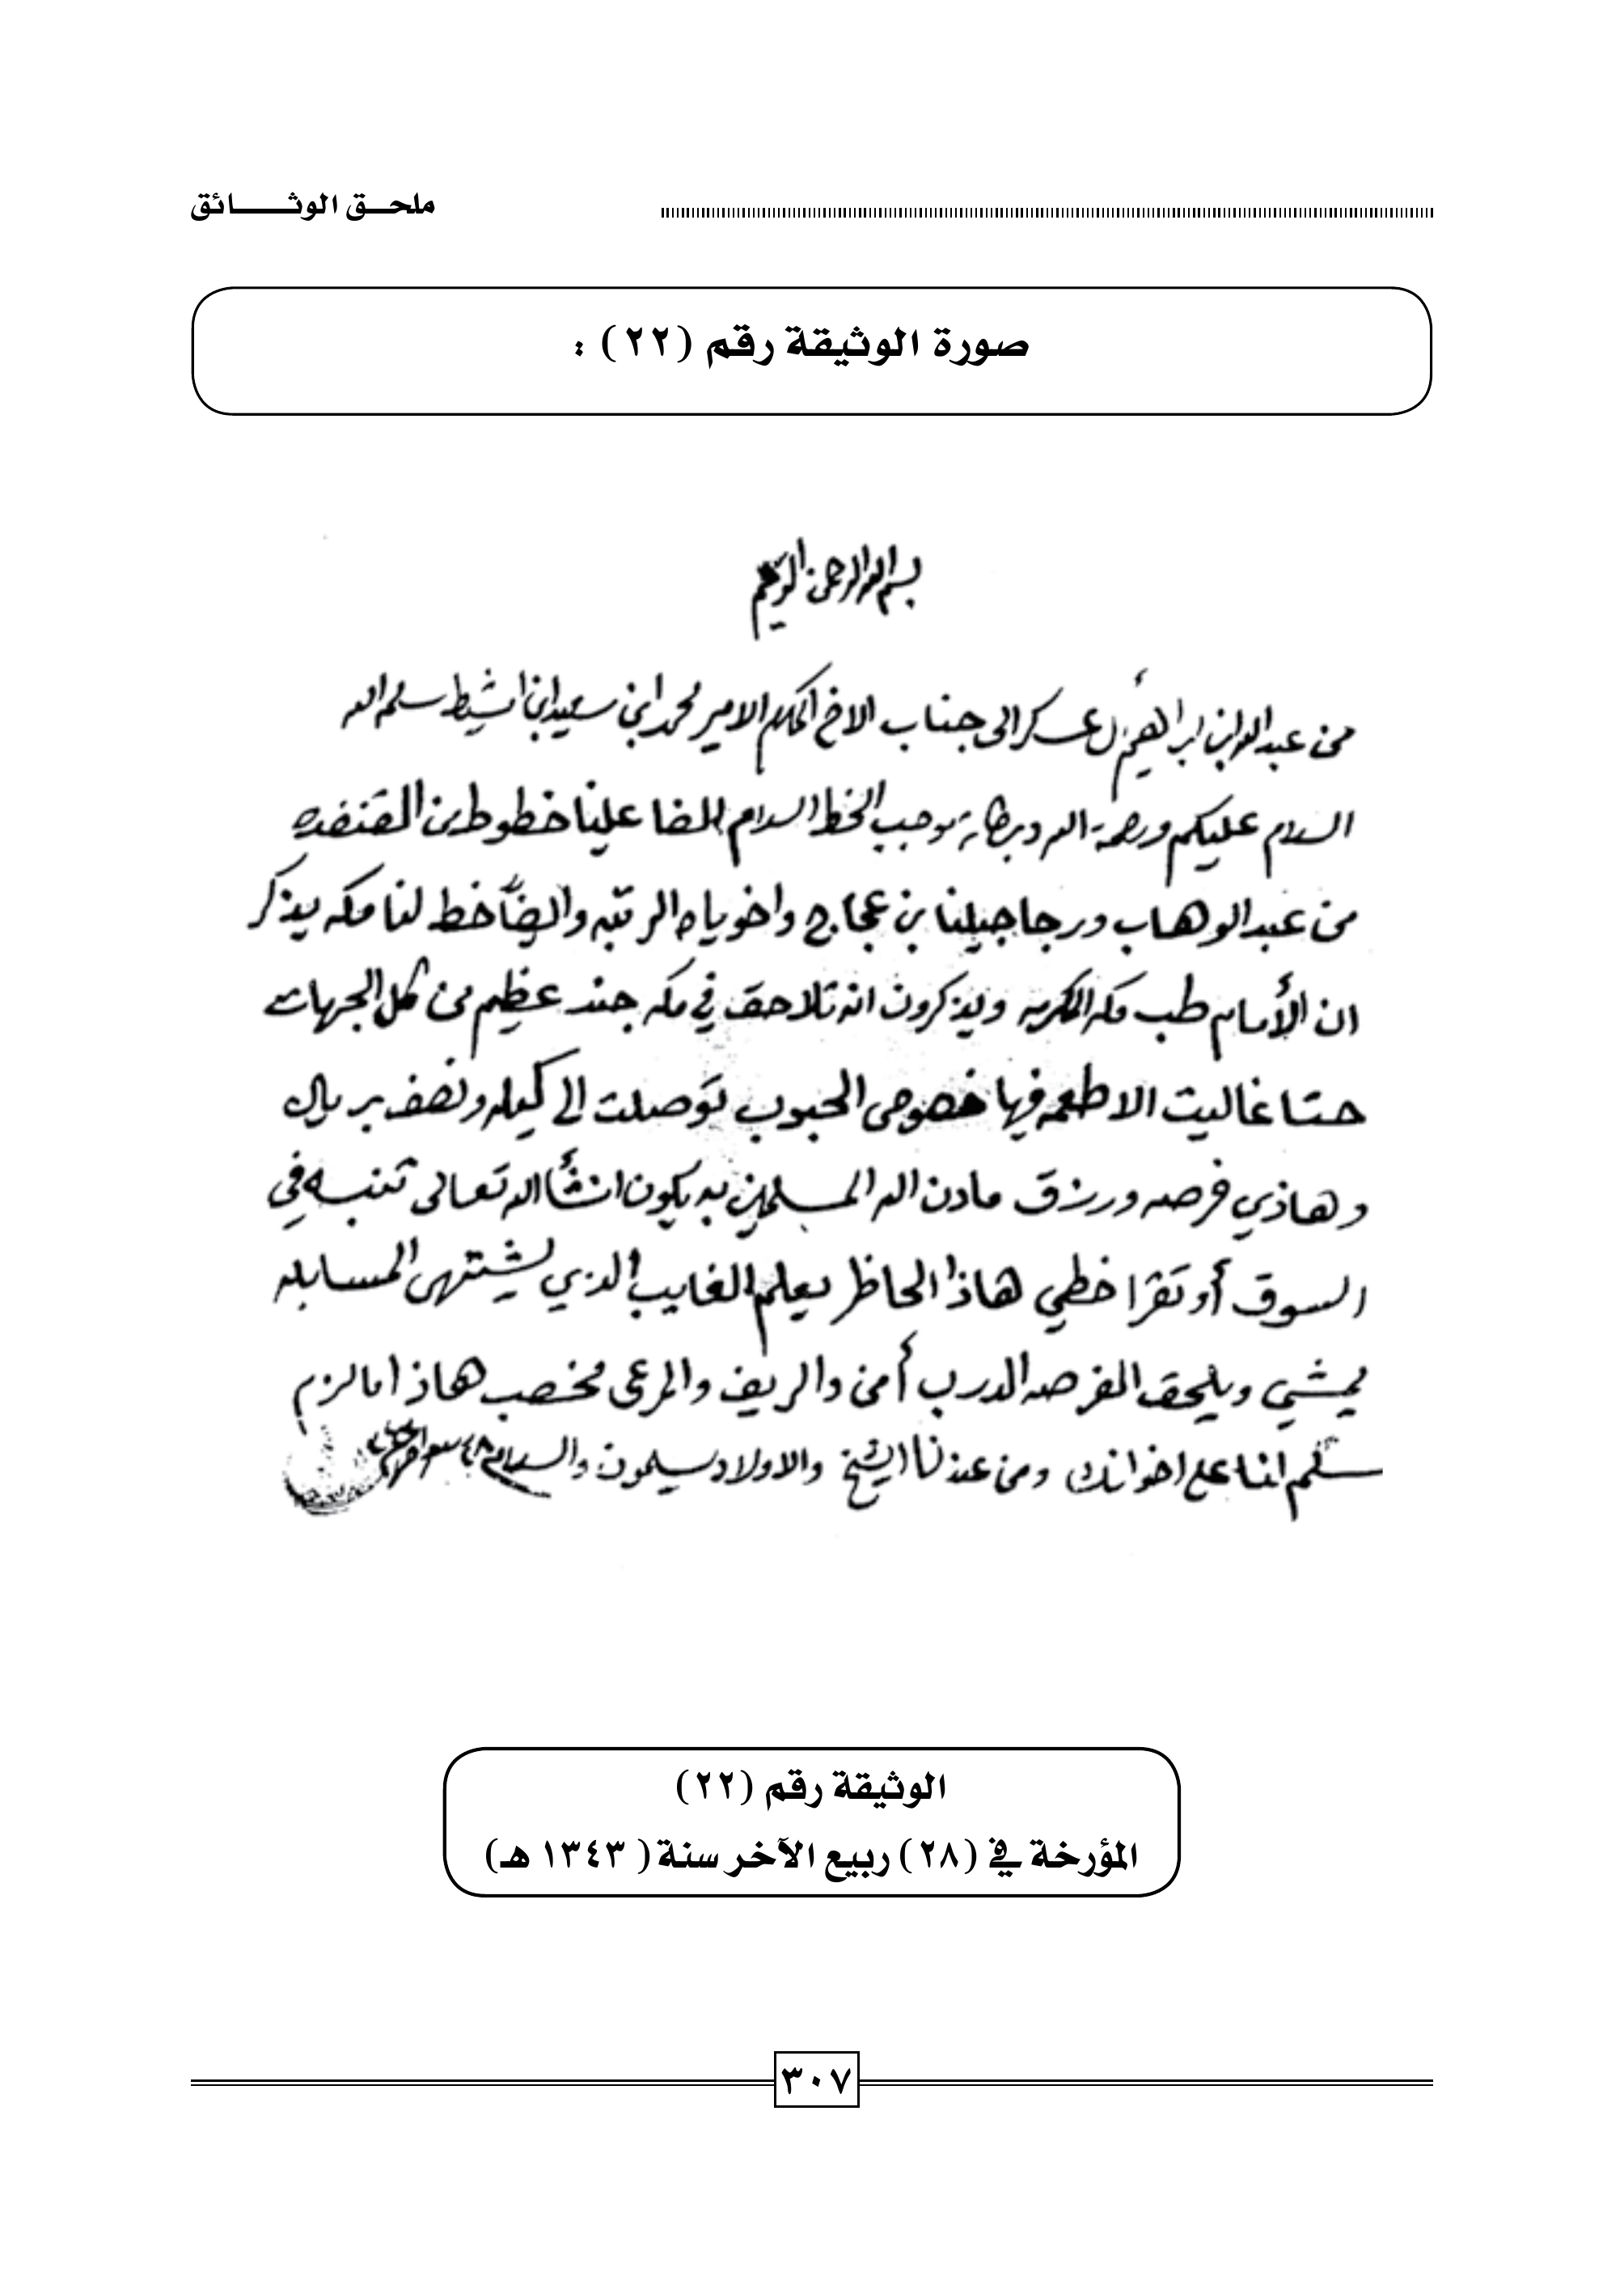 ملحـــق الوثـــــــائق
صورة الوثيقة رقم (٢٢) :
بسم الله الرحمن الرحيم
من عبد الله ابن ابراهيم ال عسكر الى جناب الاخ المكرم الامير محمد ابن سعيد ابن امشيط سلمه الله
السلام عليكم ورحمة الله وبركاته موجب الخط السلام لافا علينا خطوط من القنفده
من عبد الوهاب ورجاجيلنا بن عجاج واخوياه الرتبه وايضاً خط لنا مكه يذكر
ان الأمام طب مكه المكرمه ويذكرون انه تلاحق في مكه جند عظيم من كل الجهات
حتا غاليت الاطعمه فيها خصوص الحبوب توصلت الى كيله ونصف بريال
وهاذي فرصه ورزق مادن الله المسلمين به يكون انشأ الله تعالى تنبه في
السوق أو تقرا خطي هاذا الحاظر يعلم الغايب الذي يشتهى المسابله
يمشي ويلحق الفرصه الدرب أمن والريف والمرعى مخصب هاذا مالزم
سلم لنا على اخوانك ومن عندنا الشيخ والاولاد يسلمون والسلام
الوثيقة رقم (٢٢)
المؤرخة في (٢٨) ربيع الآخر سنة ( ١٣٤٣ هـ)
٣٠٧